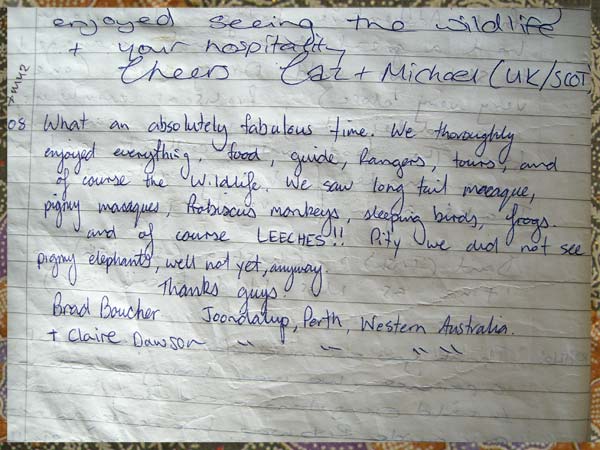 enjoyed seeing the wildlife
+ your hospitality
Cheers Caz + Michael (UK/SCOT
08 What an absolutely fabulous time. We thoroughly
enjoyed everything, food, guide, Rangers, tours, and
of course the Wildlife. We saw long tail macaque,
pigmy masaques, Probiscus monkeys, sleeping birds, frogs.
and of course LEECHES!! Pity we did not see
pigmy elephants, well not yet, anyway
Thanks guys.
Brad Boucher Joondalup, Perth, Western Australia.
+ Claire Dawson " " " "